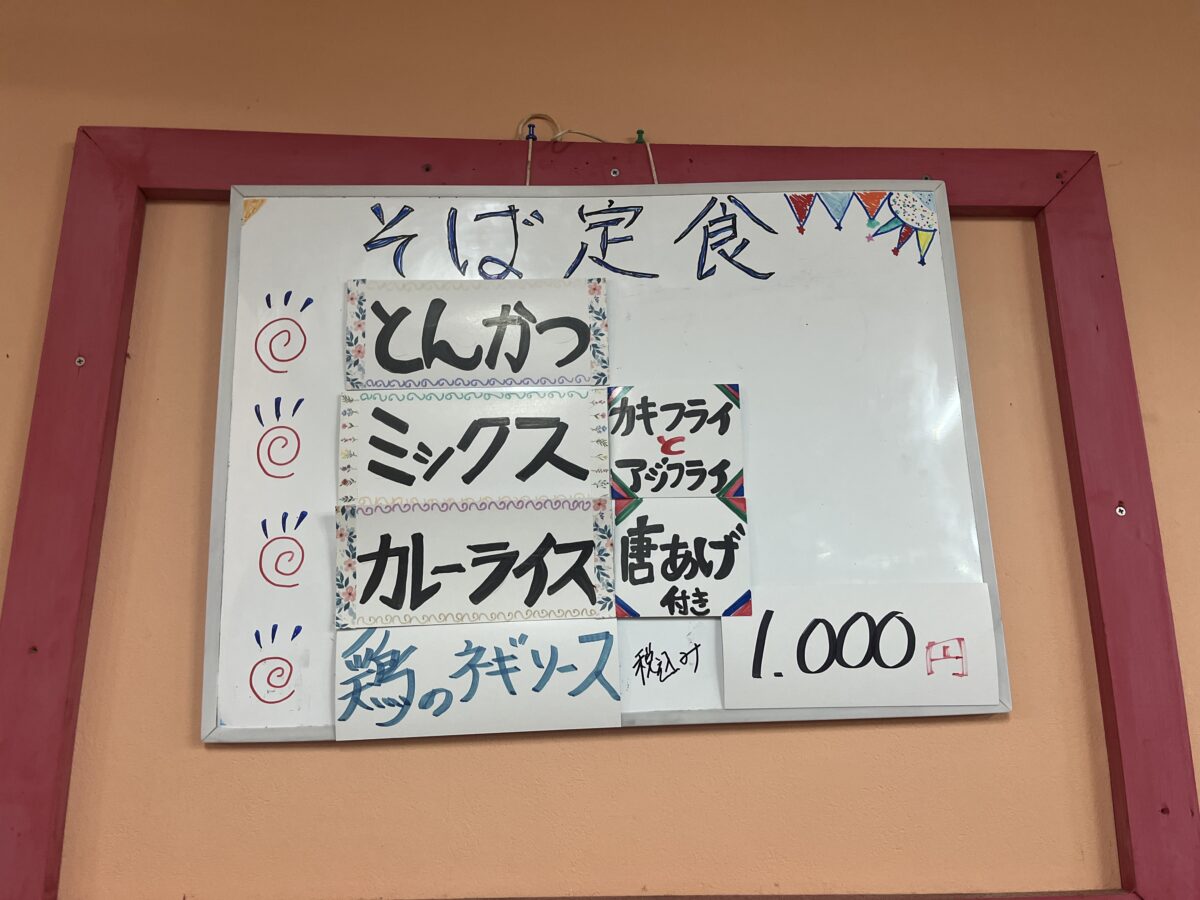 そば定食
とんかつ
ミックス
カキフライ
と
アジフライ
カレーライス
唐あげ
付き
鶏のネギソース
税込み
1.000円